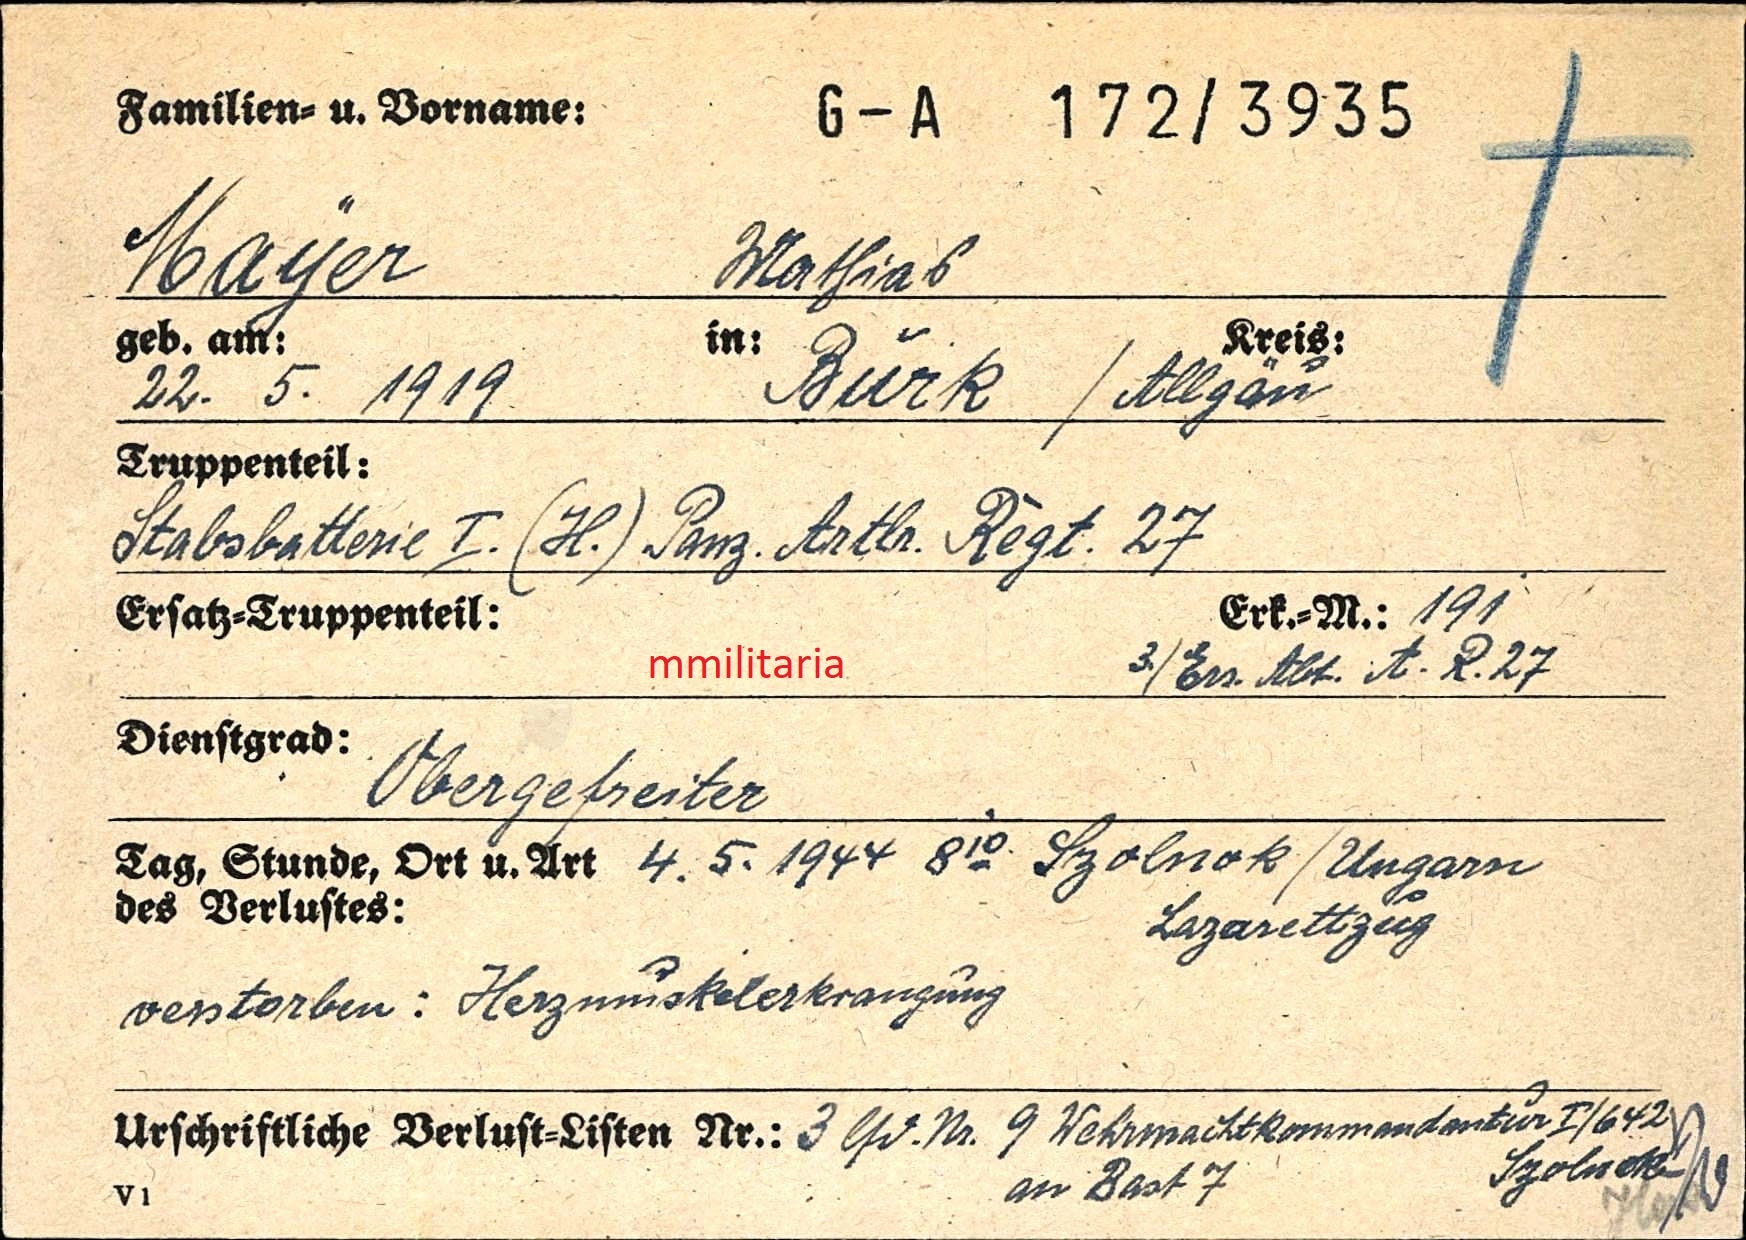 Familien- u. Vorname: G-A 172/3935
Mayer Mathias
geb. am: in: Kreis:
22. 5. 1919 Burk / Allgäu
Truppenteil:
Stabsbatterie I. (H.) Panz. Artlr. Regt. 27
Ersatz-Truppenteil: Erk.-M.: 191
mmilitaria 3./Ers. Abt. A. R. 27
Dienstgrad:
Obergefreiter
Tag, Stunde, Ort u. Art 4. 5. 1944 8¹⁰ Szolnok / Ungarn
des Verlustes: Lazarettzug
verstorben: Herzmuskelerkrangung
Urschriftliche Verlust-Listen Nr.: 3 lfd. Nr. 9 Wehrmachtkommandantur I/642
an Bast 7 Szolnok
V 1